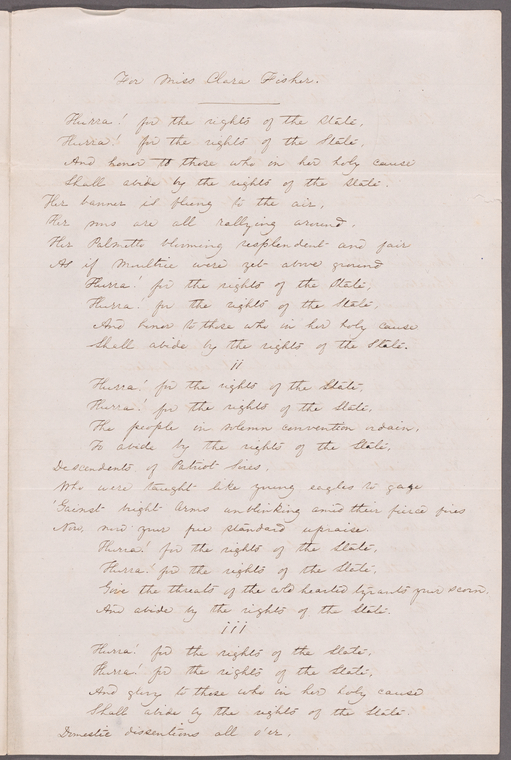 For Miss Clara Fisher.
Hurra! for the rights of the State,
Hurra! for the rights of the State,
And honor to those who in her holy cause
Shall abide by the rights of the State.
Her banner is flung to the air,
Her sons are all rallying around,
Her Palmetto blooming resplendent and fair
As if Moultrie were yet above ground
Hurra! for the rights of the State,
Hurra! for the rights of the State,
And honor to those who in her holy cause
Shall abide by the rights of the State.
ii
Hurra! for the rights of the State,
Hurra! for the rights of the State,
The people in solemn convention ordain,
To abide by the rights of the State,
Descendents of Patriot Sires,
Who were taught like young eagles to gaze
'Gainst bright Arms unblinking amid their fierce fires
Now, your free standard upraise.
Hurra! for the rights of the State,
Hurra! for the rights of the State,
Give the threats of the cold hearted tyrants your scorn.
And abide by the rights of the State.
iii
Hurra! for the rights of the State,
Hurra! for the rights of the State,
And glory to those who in her holy cause
Shall abide by the rights of the State.
Domestic dissentions all o'er,